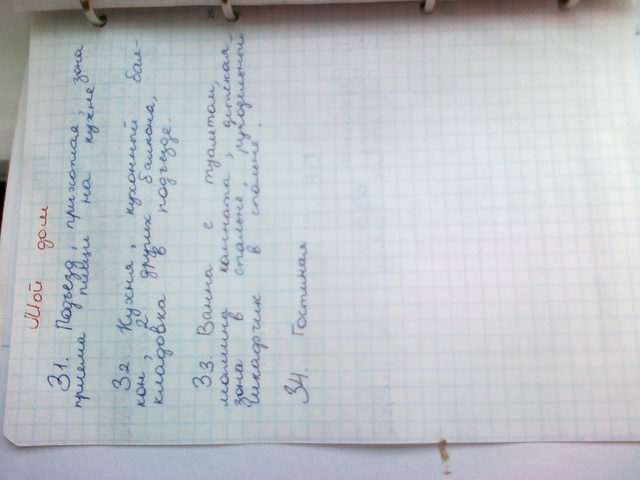 Мой дом
З1. Подъезд, прихожая, зона
приема пищи на кухне
З2 Кухня, кухонный бал-
кон, 2 других балкона,
кладовка в подъезде.
З3. Ванна с туалетом,
мамина комната, детская
зона в спальне, рукодельный
шкафчик в спальне.
З4. Гостиная